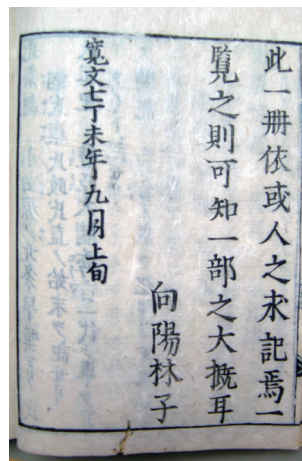 此一册依或人之求記焉一
覽之則可知一部之大槪耳
向陽林子
寬文七丁未年九月上旬